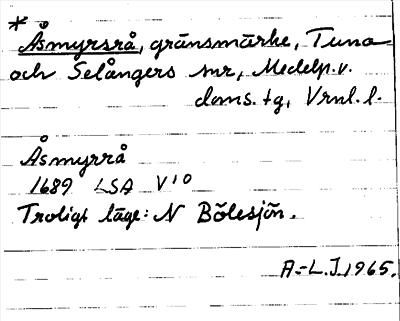 *
Åsmyrsrå, gränsmärke, Tuna
och Selångers snr, Medelp.v.
doms. tg, Vrnl. l.
Åsmyrrå
1689 LSA V¹⁰
Troligt läge: N Bölesjön.
A.-L.J. 1965.